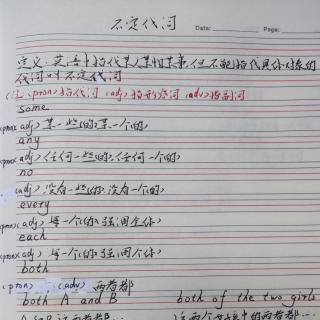 不定代词
Date:
Page:
定义:英语中指代某人某物某事,但不能指代具体的
代词叫不定代词
(注(pron)指代词 (adj)指形容词 (adv)指副词
some
(pron)(adj)某一些(的),某一个(的)
any
(pron)(adj)任何一些(的),任何一个(的)
no
(adj)没有一些(的),没有一个(的)
every
(pron)(adj)每一个(的),强调全体
each
(pron)(adj)每一个(的),强调个体
both
(pron) (adv)两者都
both A and B both of the two girls